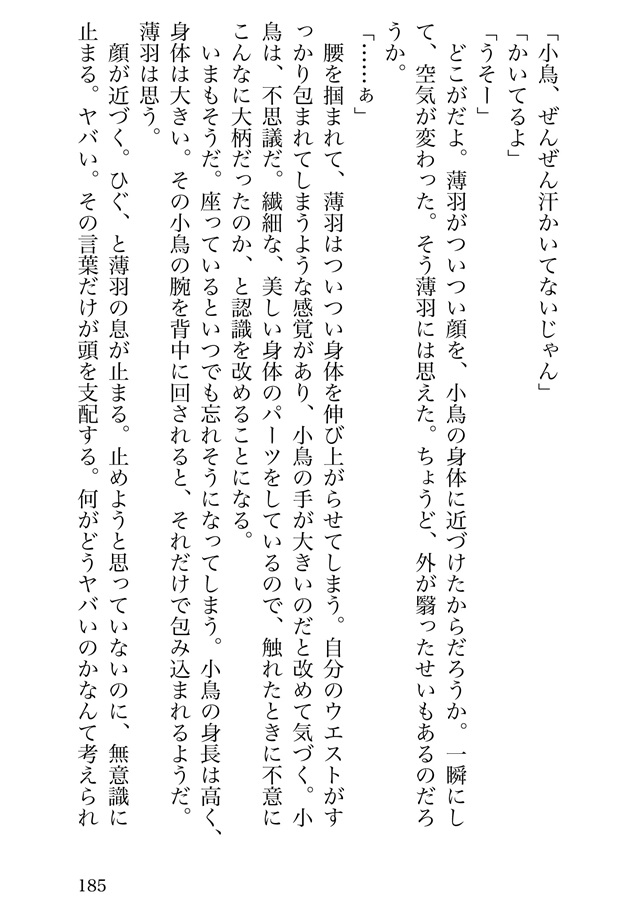 「小鳥、ぜんぜん汗かいてないじゃん」
「かいてるよ」
「うそー」
　どこがだよ。薄羽がついつい顔を、小鳥の身体に近づけたからだろうか。一瞬にし
て、空気が変わった。そう薄羽には思えた。ちょうど、外が翳ったせいもあるのだろ
うか。
「……ぁ」
　腰を掴まれて、薄羽はついつい身体を伸び上がらせてしまう。自分のウエストがす
っかり包まれてしまうような感覚があり、小鳥の手が大きいのだと改めて気づく。小
鳥は、不思議だ。繊細な、美しい身体のパーツをしているので、触れたときに不意に
こんなに大柄だったのか、と認識を改めることになる。
　いまもそうだ。座っているといつでも忘れそうになってしまう。小鳥の身長は高く、
身体は大きい。その小鳥の腕を背中に回されると、それだけで包み込まれるようだ。
薄羽は思う。
　顔が近づく。ひぐ、と薄羽の息が止まる。止めようと思っていないのに、無意識に
止まる。ヤバい。その言葉だけが頭を支配する。何がどうヤバいのかなんて考えられ
185